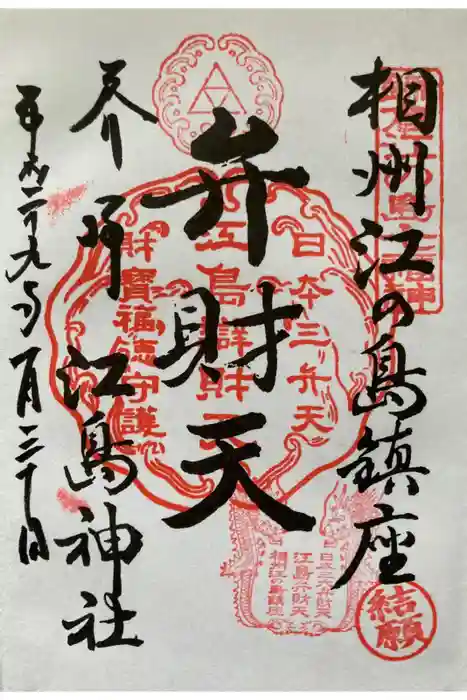 相州江の島鎮座
弁財天
奉拝 江島神社
平成二十九年一月三十日
日本三弁天
江島辯財天
財寶福徳守護
日本三大弁財天
江島弁財天
相州江の島鎮座
結願